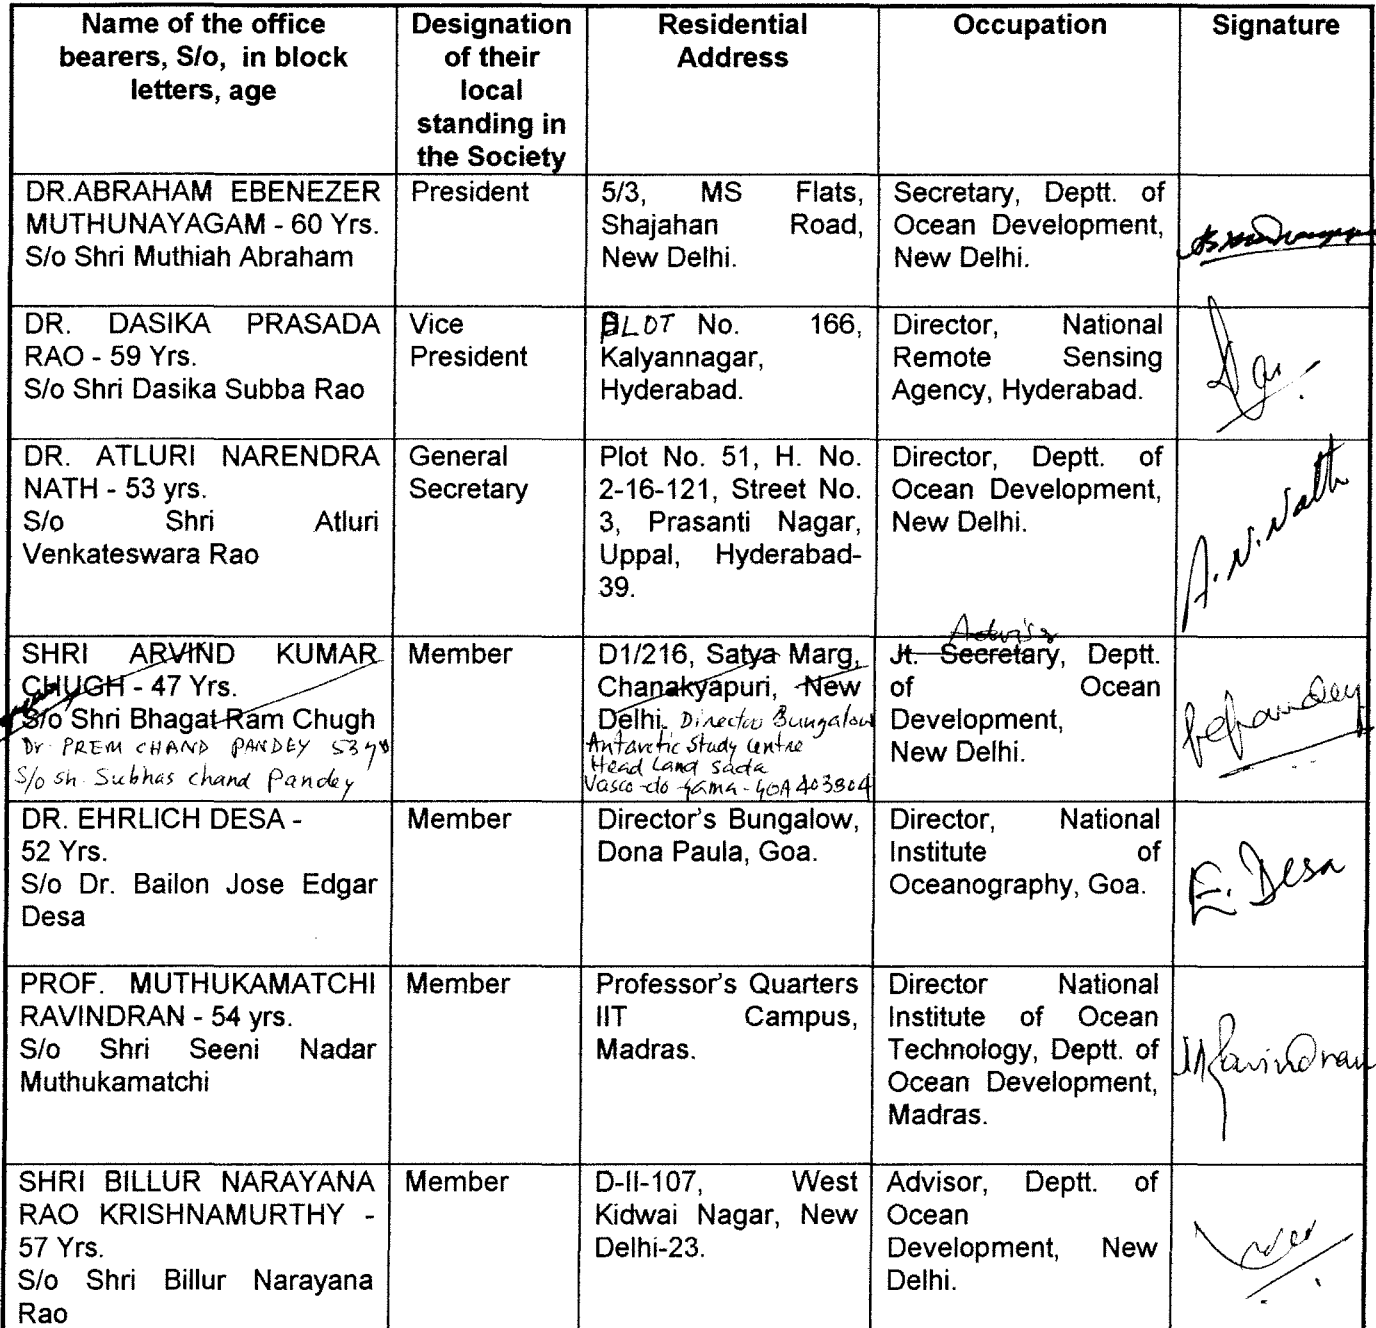 Name of the office bearers, S/o, in block letters, age
Designation of their local standing in the Society
Residential Address
Occupation
Signature
DR.ABRAHAM EBENEZER
MUTHUNAYAGAM - 60 Yrs.
S/o Shri Muthiah Abraham
President
5/3, MS Flats,
Shajahan Road,
New Delhi.
Secretary, Deptt. of
Ocean Development,
New Delhi.
DR. DASIKA PRASADA
RAO - 59 Yrs.
S/o Shri Dasika Subba Rao
Vice
President
PLOT No. 166,
Kalyannagar,
Hyderabad.
Director, National
Remote Sensing
Agency, Hyderabad.
DR. ATLURI NARENDRA
NATH - 53 yrs.
S/o Shri Atluri
Venkateswara Rao
General
Secretary
Plot No. 51, H. No.
2-16-121, Street No.
3, Prasanti Nagar,
Uppal, Hyderabad-
39.
Director, Deptt. of
Ocean Development,
New Delhi.
A. N. Nath
SHRI ARVIND KUMAR
CHUGH - 47 Yrs.
S/o Shri Bhagat Ram Chugh
Dr. PREM CHAND PANDEY 53 yrs
S/o sh. Subhas chand Pandey
Member
D1/216, Satya Marg,
Chanakyapuri, New
Delhi. Director Bungalow
Antarctic Study Centre
Head Land Sada
Vasco-do-gama-GOA 403804
Jt. Secretary, Deptt.
of Ocean
Development,
New Delhi.
pcpandey
DR. EHRLICH DESA -
52 Yrs.
S/o Dr. Bailon Jose Edgar
Desa
Member
Director's Bungalow,
Dona Paula, Goa.
Director, National
Institute of
Oceanography, Goa.
E. Desa
PROF. MUTHUKAMATCHI
RAVINDRAN - 54 yrs.
S/o Shri Seeni Nadar
Muthukamatchi
Member
Professor's Quarters
IIT Campus,
Madras.
Director National
Institute of Ocean
Technology, Deptt. of
Ocean Development,
Madras.
M Ravindran
SHRI BILLUR NARAYANA
RAO KRISHNAMURTHY -
57 Yrs.
S/o Shri Billur Narayana
Rao
Member
D-II-107, West
Kidwai Nagar, New
Delhi-23.
Advisor, Deptt. of
Ocean
Development, New
Delhi.